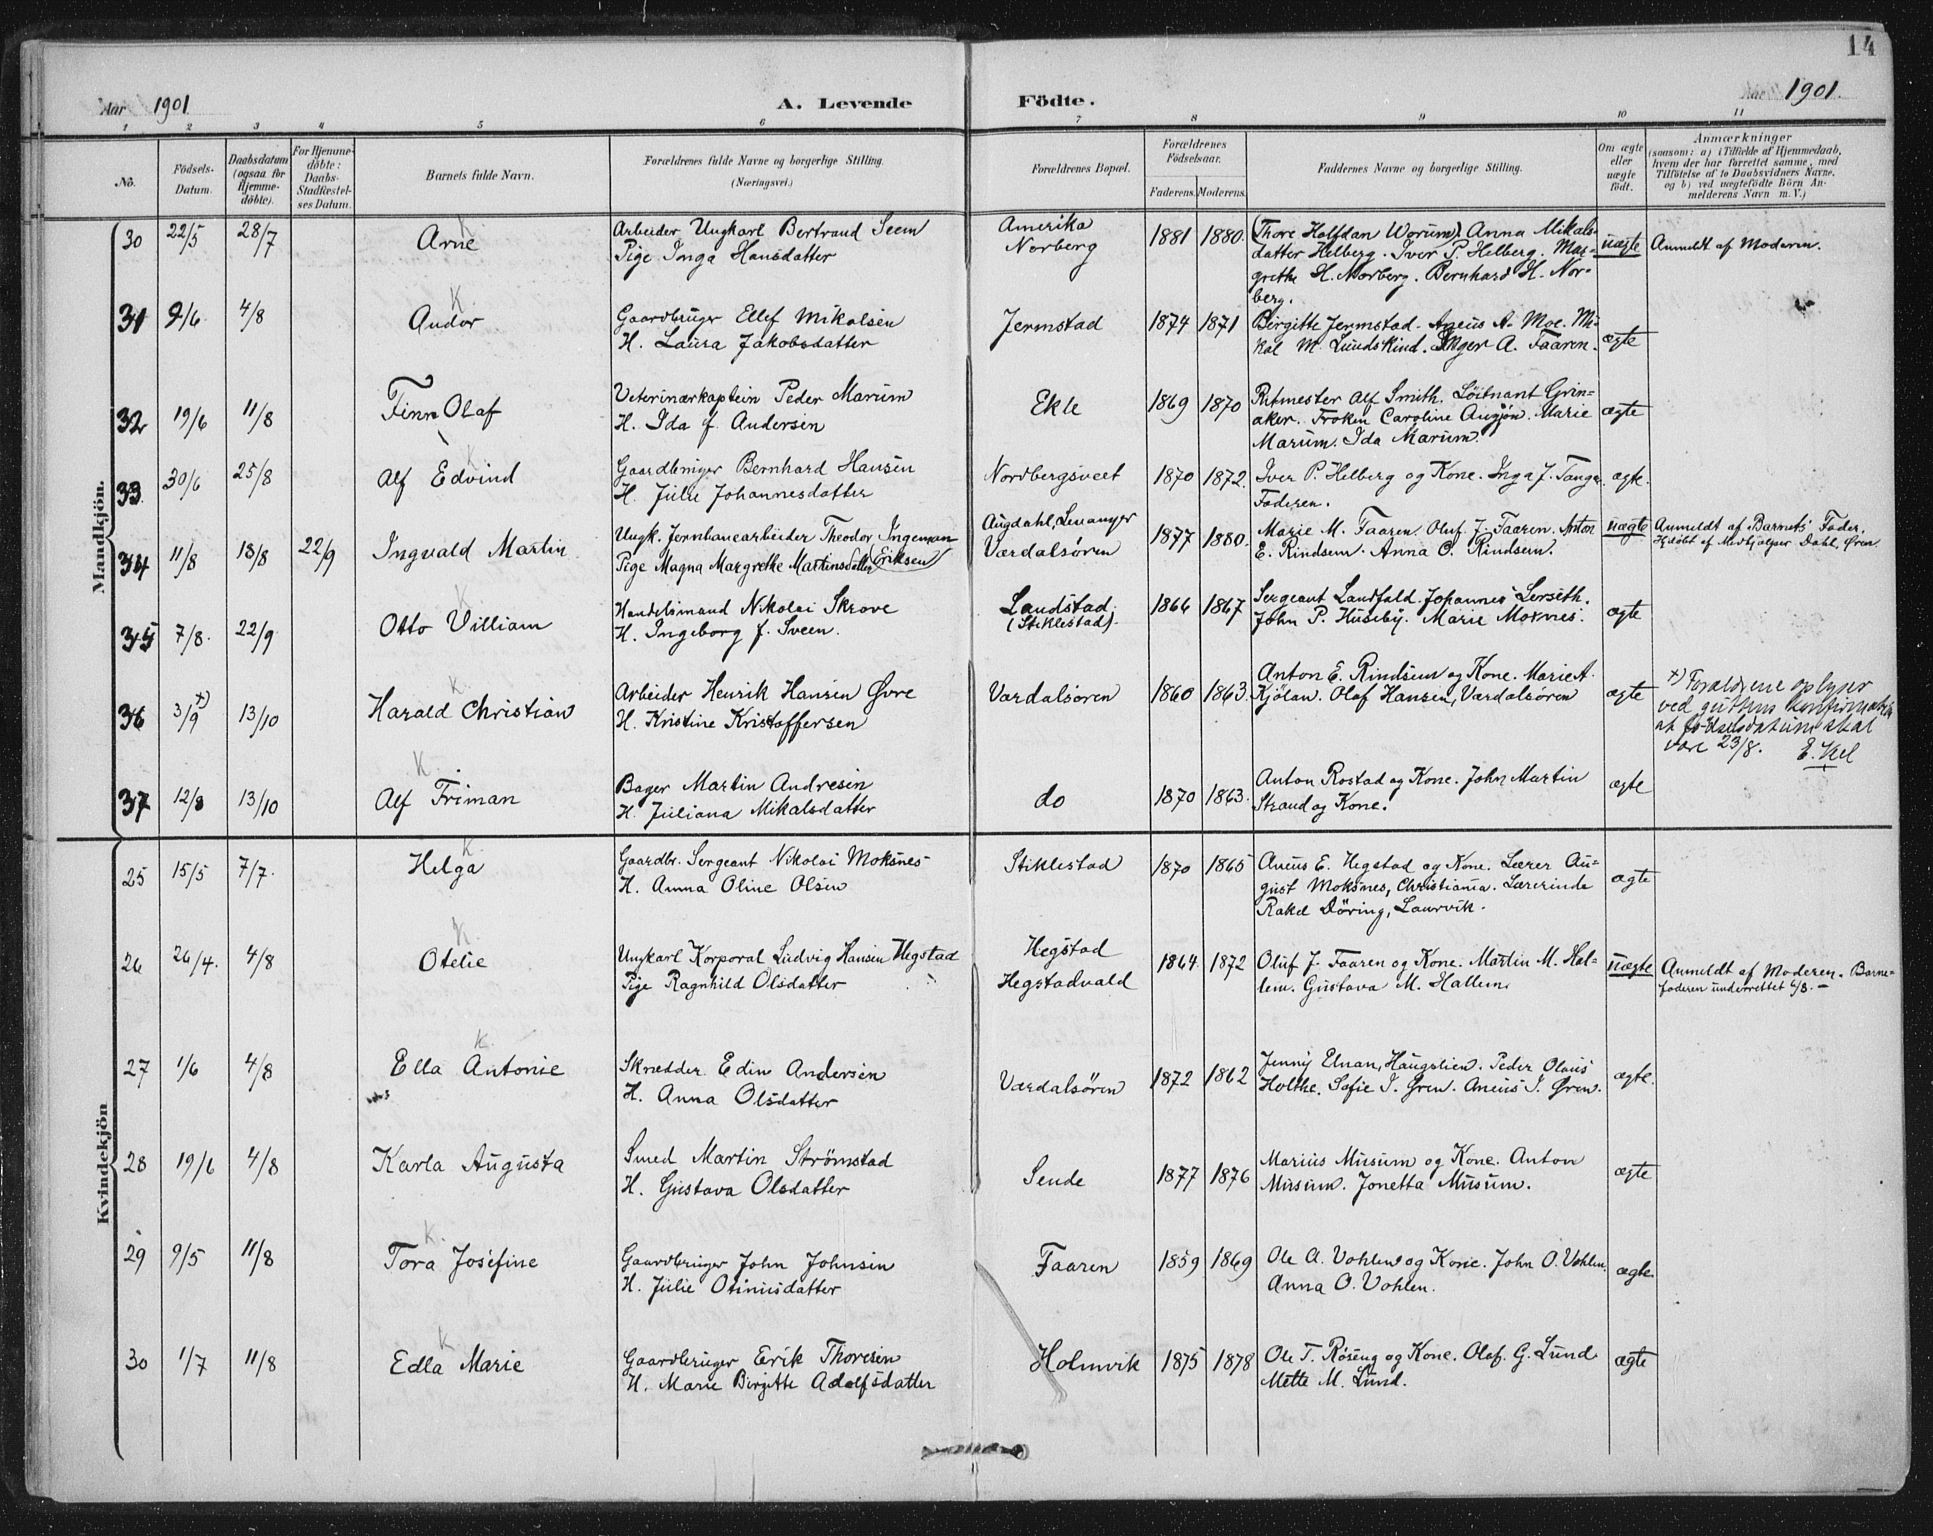 14
Aar 1901
A. Levende Födte.
Aar 1901.
1 2 3 4 5 6 7 8 9 10 11
No.
Födsels-Datum.
Daabsdatum (ogsaa for Hjemmedöbte).
For Hjemmedöbte: Daabs-Stadfæstelses Datum.
Barnets fulde Navn.
Forældrenes fulde Navne og borgerlige Stilling.
(Næringsvei.)
Forældrenes Bopæl.
Forældrenes Födselsaar.
Faderens. Moderens.
Faddernes Navne og borgerlige Stilling.
Om ægte eller uægte födt.
Anmærkninger
(saasom: a) i Tilfælde af Hjemmedaab,
hvem der har forrettet samme, med
Tilföielse af to Daabsvidners Navne,
og b) ved uægtefödte Börn Anmelderens Navn m. V.)
Mandkjön.
30 22/5 28/7 Arne K
Arbeider Ungkarl Bertrand Seem
Pige Inga Hansdatter
Amerika
Norberg
1881 1880.
(Thore Halfdan Worum) Anna Mikals-
datter Helberg. Iver P. Helberg. Mar-
grethe H. Norberg. Bernhard H. Nor-
berg.
uægte
Anmeldt af Moderen.
31 9/6 4/8 Andor K
Gaardbruger Ellef Mikalsen
H. Laura Jakobsdatter
Jermstad
1874 1871
Birgitte Jermstad. Aneus A. Moe. Mi-
kal M. Lundskind. Inger A. Faaren.
ægte
32 19/6 11/8 Finn Olaf
Veterinærkaptein Peder Marum
H. Ida f. Andersen
Ekle
1869 1870
Ritmester Alf Smith. Löitnant Grin-
aker. Frøken Caroline Augjøn. Marie
Marum. Ida Marum.
ægte
33 30/6 25/8 Alf Edvind K
Gaardbruger Bernhard Hansen
H. Julie Johannesdatter
Nordbergsveet
1870 1872.
Iver P. Helberg og Kone. Inga J. Tange.
Faderen.
ægte.
34 11/8 18/8 22/9 Ingvald Martin
Ungk. Jernbanearbeider Theodor Ingeman
Pige Magna Margrethe Martinsdatter (Eriksen)
Augdahl, Levanger
Værdalsören
1877 1880.
Marie M. Faaren. Oluf J. Faaren. Anton
E. Rindsem. Anna O. Rindsem.
uægte
Anmeldt af Barnets Fader.
Hjdöbt af Medhjælper Dahl, Øren
35 7/8. 22/9 Otto Villiam K
Handelsmand Nikolai Skrove
H. Ingeborg f. Sveen.
Landstad
(Stiklestad).
1866 1867
Sergeant Landfald. Johannes Lerseth.
John P. Huseby. Marie Moknes.
ægte
36 3/9 x) 13/10 Harald Christian K
Arbeider Henrik Hansen Øvre
H. Kristine Kristoffersen
Værdalsören
1860 1863.
Anton E. Rindsem og Kone. Marie A.
Kjölan. Olaf Hansen, Værdalsören
ægte
x) Forældrene oplyser
ved guttens konfirmation
at födselsdatum skal
være 23/8. E. Kel
37 12/8 13/10 Alf Friman K.
Bager Martin Andresen
H. Juliana Mikalsdatter
do
1870 1863.
Anton Rostad og Kone. John Martin
Strand og Kone.
ægte
Kvindekjön
25 15/5 7/7. Helga K.
Gaardbr. Sergeant Nikolai Moksnes
H. Anna Oline Olsen
Stiklestad
1870 1865
Aneus E. Hegstad og Kone. Lærer Au-
gust Moksnes, Christiania. Lærerinde
Rakel Döring, Laurvik.
ægte
26 26/4. 4/8 Otelie K.
Ungkarl Korporal Ludvig Hansen Hegstad
Pige Ragnhild Olsdatter
Hegstad
Hegstadvald
1864 1872
Oluf J. Faaren og Kone. Martin M. Hal-
lem. Gustava M. Hallem.
uægte
Anmeldt af Moderen. Barne-
faderen underrettet 6/8. –
27 1/6 4/8 Ella Antonie K.
Skrædder Edin Andersen
H. Anna Olsdatter
Værdalsören
1872 1862
Jenny Elnan, Haugslien. Peder Olaus
Holthe. Sofie I. Øren. Aneus I. Øren.
ægte.
28 19/6 4/8 Karla Augusta
Smed Martin Strömstad
H. Gustava Olsdatter
Sende
1877 1876
Marius Musum og Kone. Anton
Musum. Jonetta Musum.
ægte
29 9/5 11/8 Tora Josefine K.
Gaardbruger John Johnsen
H. Julie Otinusdatter
Faaren
1859 1869
Ole A. Vohlen og Kone. John O. Vohlen.
Anna O. Vohlen.
ægte.
30 1/7 11/8 Edla Marie K
Gaardbruger Erik Thoresen
H. Marie Birgitte Adolfsdatter
Holmvik
1875 1878
Ole T. Röseng og Kone. Olaf. G. Lund
Mette M. Lund.
ægte